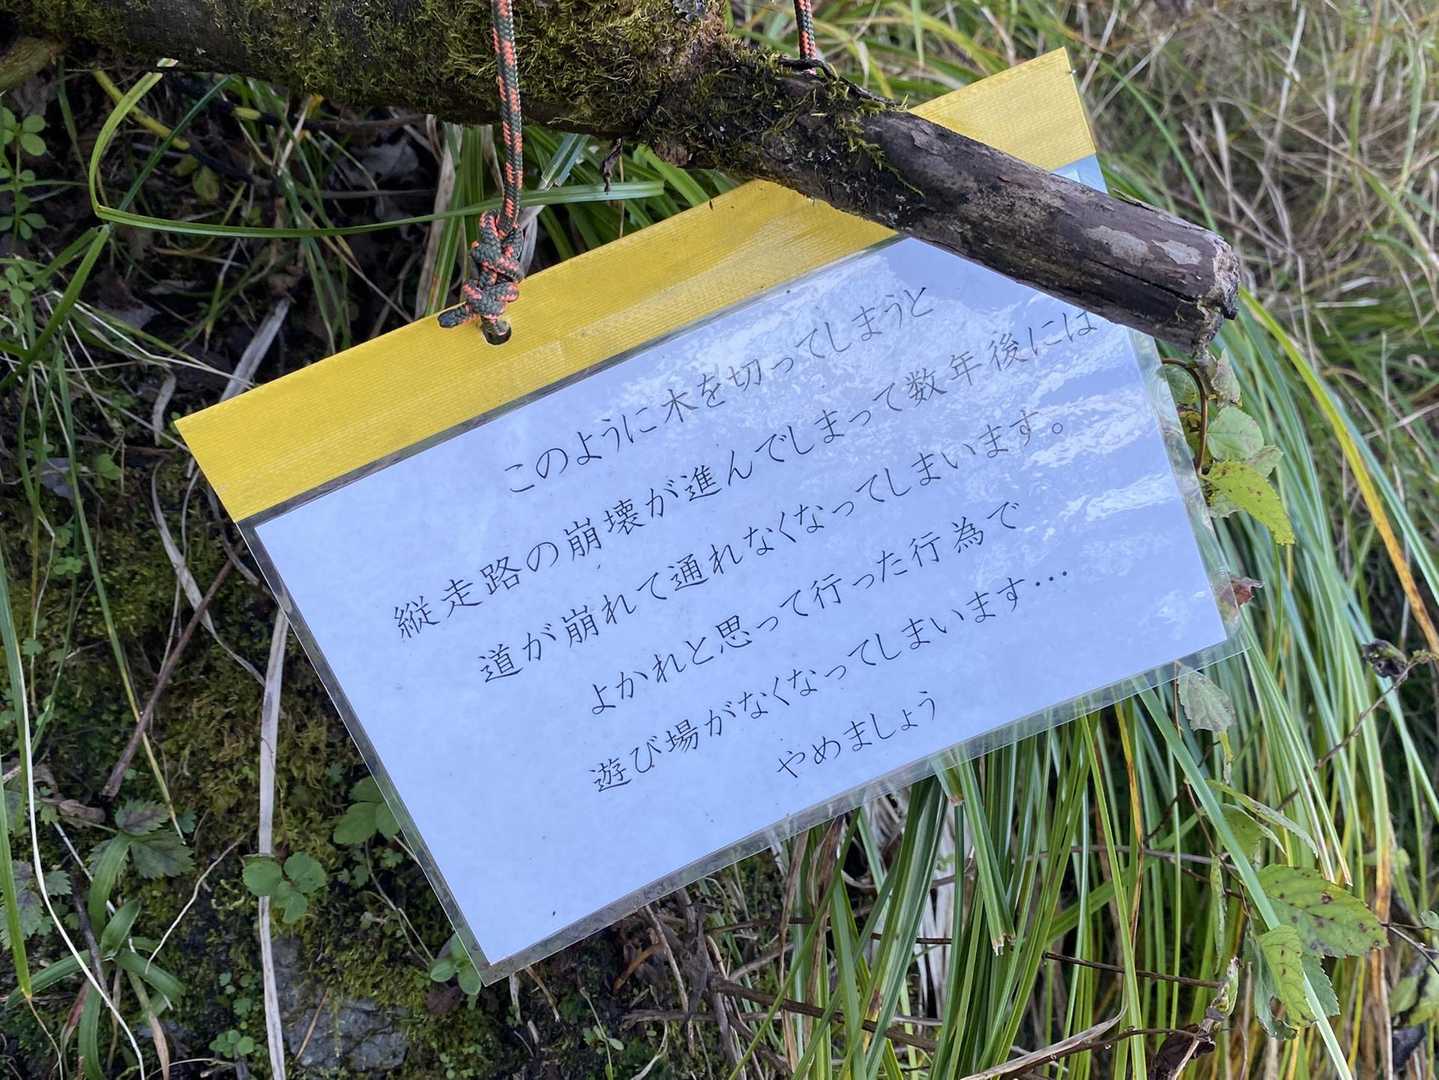 このように木を切ってしまうと
縦走路の崩壊が進んでしまって数年後には
道が崩れて通れなくなってしまいます。
よかれと思って行った行為で
遊び場がなくなってしまいます…
やめましょう